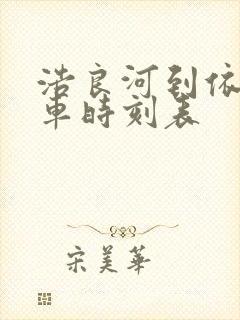 浩良河到依
車時刻表
宋美華